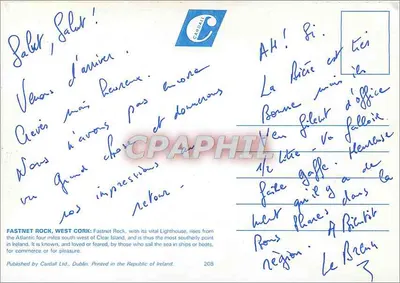 Salut, Salut !
Venons d'arriver.
Crevés mais heureux.
Nous n'avons pas encore
vu grand chose et donnerons
nos impressions au
retour -
CARDALL
AH ! Si.
La Bière est très
Bonne mais ils
V'en filent d'office
1/2 litre - Va falloir
faire gaffe. Heureuse
ment qu'il y a de
Bons Phares dans la
région. A Bientôt
Le
CPAPHIL
FASTNET ROCK, WEST CORK: Fastnet Rock, with its vital Lighthouse, rises from
the Atlantic four miles south-west of Clear Island, and is thus the most southerly point
in Ireland. It is known, and loved or feared, by those who call the sea in ships or boats,
for commerce or for pleasure.
Published by Cardall Ltd., Dublin. Printed in the Republic of Ireland. 205